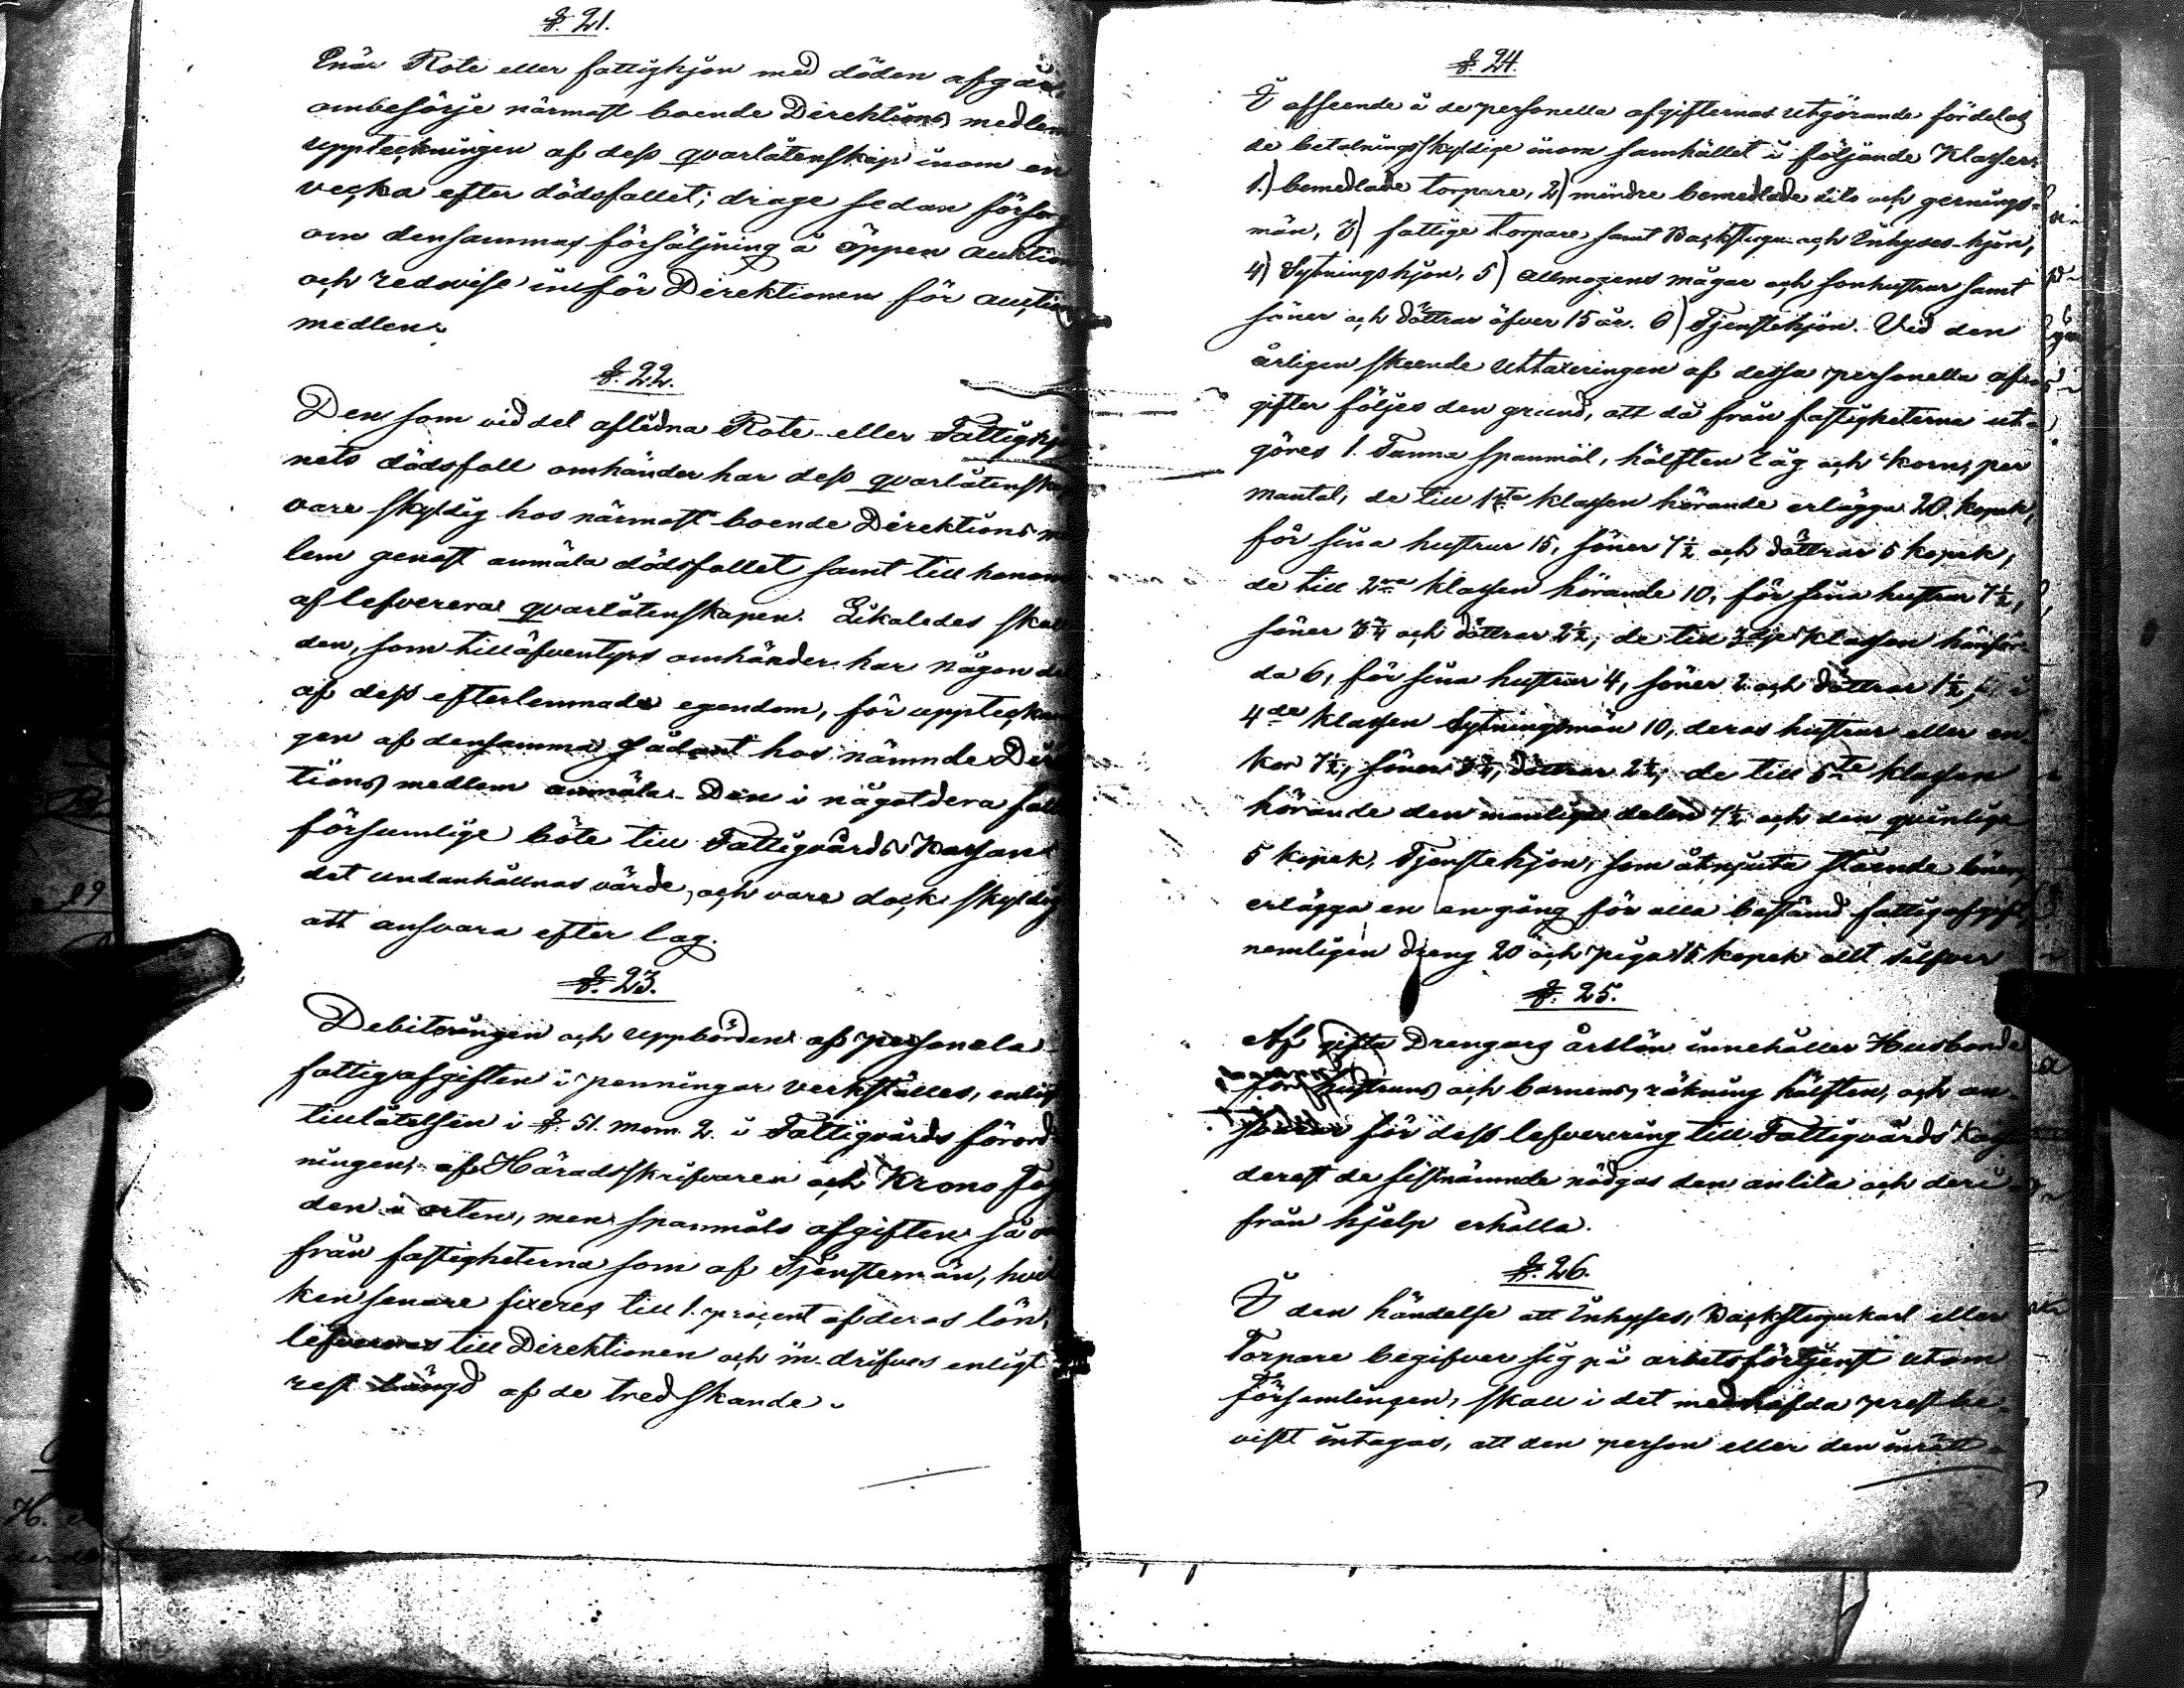 §. 21.
Enär Rote eller fattighjon med döden afgår,
ombesörje närmast boende Direktions medlem
uppteckningen af dess qvarlåtenskap inom en
vecka efter dödsfallet; drage sedan försorg
om densammas försäljning å öppen auktion
och redovise inför Direktionen för auctions
medlen.
§. 22.
Den som vid det aflidna Rote- eller Fattighjo
nets dödsfall omhänder har dess qvarlåtenskap
vare skyldig hos närmast boende Direktions med
lem genast anmäla dödsfallet samt till honom
aflefverera qvarlåtenskapen. Likaledes skall
den, som tilläfventyrs omhänder har någon del
af dess efterlemnade egendom, för uppteckan
gen af densamma sådant hos nämnde Direk
tions medlem anmäla. Den i någotdera fall
försumlige böte till Fattigvårds Kassan
det undanhållnas värde, och vare dock skyldig
att ansvara efter lag.
§. 23.
Debiteringen och uppbörden af personela
fattigafgiften i penningar verkställes, enligt
tillåtelsen i §. 51. mom. 2. i Fattigvårds förord
ningen, af Häradsskrifvaren och Krono Fog
den i orten, men spanmåls afgiften så
från fastigheterna som af Tjenstemän, hvil
ken senare fixeres till 1. procent af deras lön,
lefvereras till Direktionen och indrifves enligt
rest längd af de tredskande.
§. 24.
I afseende å de personella afgifternas utgörande fördelas
de betalningsskyldige inom samhället i följande Klasser:
1.) bemedlade torpare, 2) mindre bemedlade dito och gernings-
män, 3) fattige torpare samt Backstugu- och Inhyses-hjon,
4) Sytningshjon, 5) allmogens mågar och sonhustrur samt
söner och döttrar öfver 15 år. 6) Tjenstehjon. Vid den
årligen skeende uttaxeringen af dessa personella af-
gifter följes den grund, att då från fastigheterna ut-
göres 1. Tunna spanmål, hälften råg och korn, per
mantal, de till 1sta klassen hörande erlägga 20. kopek,
för sina hustrur 15, söner 7½ och döttrar 5 kopek,
de till 2dra klassen hörande 10, för sina hustrur 7½,
söner 3¾ och döttrar 2½, de till 3dje klassen hänför-
da 6, för sina hustrur 4, söner 2 och döttrar 1½, i
4de klassen Sytningsmän 10, deras hustrur eller en-
kor 7½, söner 3¾, döttrar 2½, de till 5te klassen
hörande den manliga delen 7½ och den qvinliga
5 kopek. Tjenstehjon, som åtnjuta stående lön,
erlägga en en gång för alla bestämd fattigafgift,
nemligen dreng 20 och piga 15 kopek allt silfver
§. 25.
Af gifta Drengars årslön innehåller Husbonde
för hustruns och barnens räkning hälften, och an-
svarar för dess lefverering till Fattigvårds Kassan
derest de sistnämnde nödgas den anlita och deri-
från hjelp erhålla.
§. 26.
I den händelse att Inhyses, Backstugukarl eller
Torpare begifver sig på arbetsförtjenst utom
församlingen, skall i det medhafda prestbe-
viset intagas, att den person eller den inrätt-